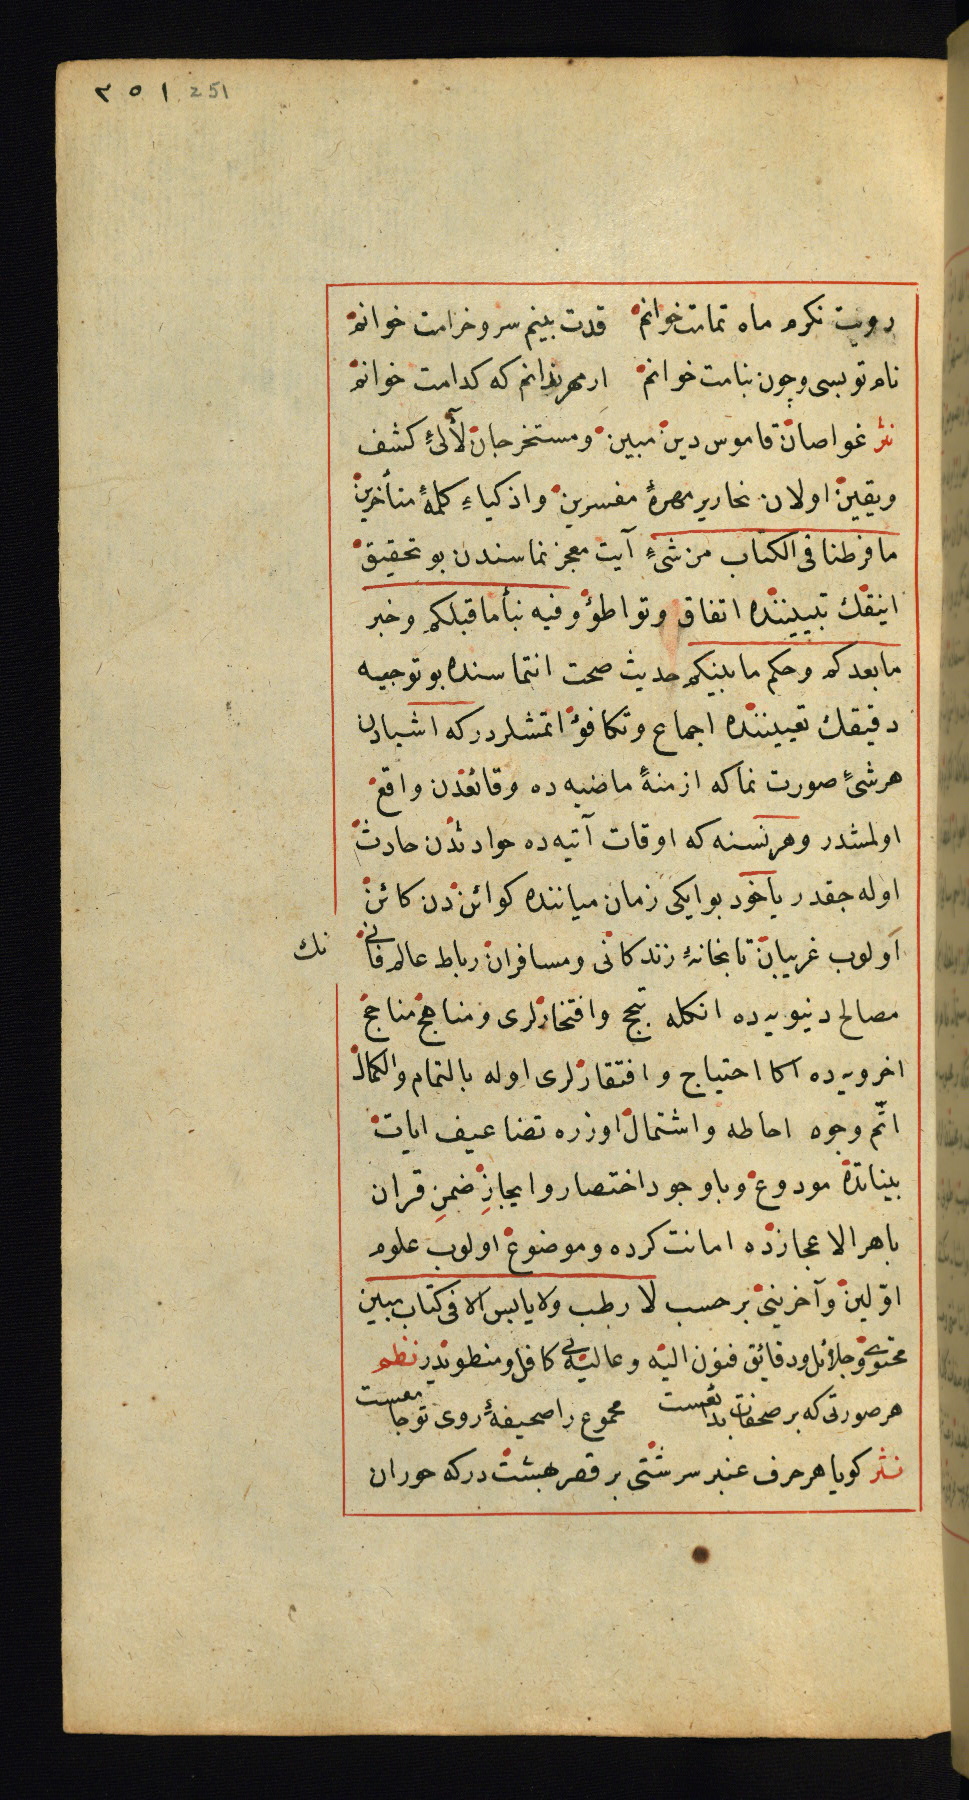 ٢٥١ 251
رویت نکرم ماه تمامت خوانم قدت بینم سرو خرامت خوانم
نام تو بسی و چون بنامت خوانم از مهر ندانم که کدامت خوانم
نثر غواصان قاموس دین مبین و مستخرجان لآلئ کشف
ویقین اولان نحاریر مهرهٔ مفسرین واذکیاء کلمهٔ متأخرین
ما فرطنا فی الکتاب من شیءٍ آیت معجز نماسندن بو تحقیق
انیقك تبییننده اتفاق وتواطؤ وفیه نبأ ما قبلکم وخبر
ما بعدکم وحکم ما بینکم حدیث صحت انتماسنده بو توجیه
دقیقك تعییننده اجماع وتکافؤ اتمشلردرکه اشیادن
هر شئ صورت نما که ازمنهٔ ماضیه ده وقائعدن واقع
اولمشدر وهر نسنه که اوقات آتیه ده حوادثدن حادث
اوله جقدر یاخود بو ایکی زمان میاننده کوائن دن کائن
اولوب غریبان تابخانهٔ زندکانی ومسافران رباط عالم فانی نك
مصالح دنیویه ده انکله تبجح وافتخارلری ومناهج مناجح
اخرویه ده اکا احتیاج وافتقارلری اوله بالتمام والکمال
اتّم وجوه احاطه واشتمال اوزره تضاعیف ایات
بیناتده مودوع وباوجود اختصار وایجازِ ضمنِ قران
باهر الاعجازده امانت کرده وموضوع اولوب علوم
اوّلین وآخرینی برحسب لا رطب ولا یابس الا فی کتاب مبین
محتوی وجلائل ودقایق فنون الیّه وعالیّه یی کافل ومنطویدر نظم
هر صورتی که بر صحفات بدائعست مجموع را صحیفهٔ روی تو جامعست
نثر کویا هر حرف عنبر سرشتی بر قصر بهشت درکه حوران